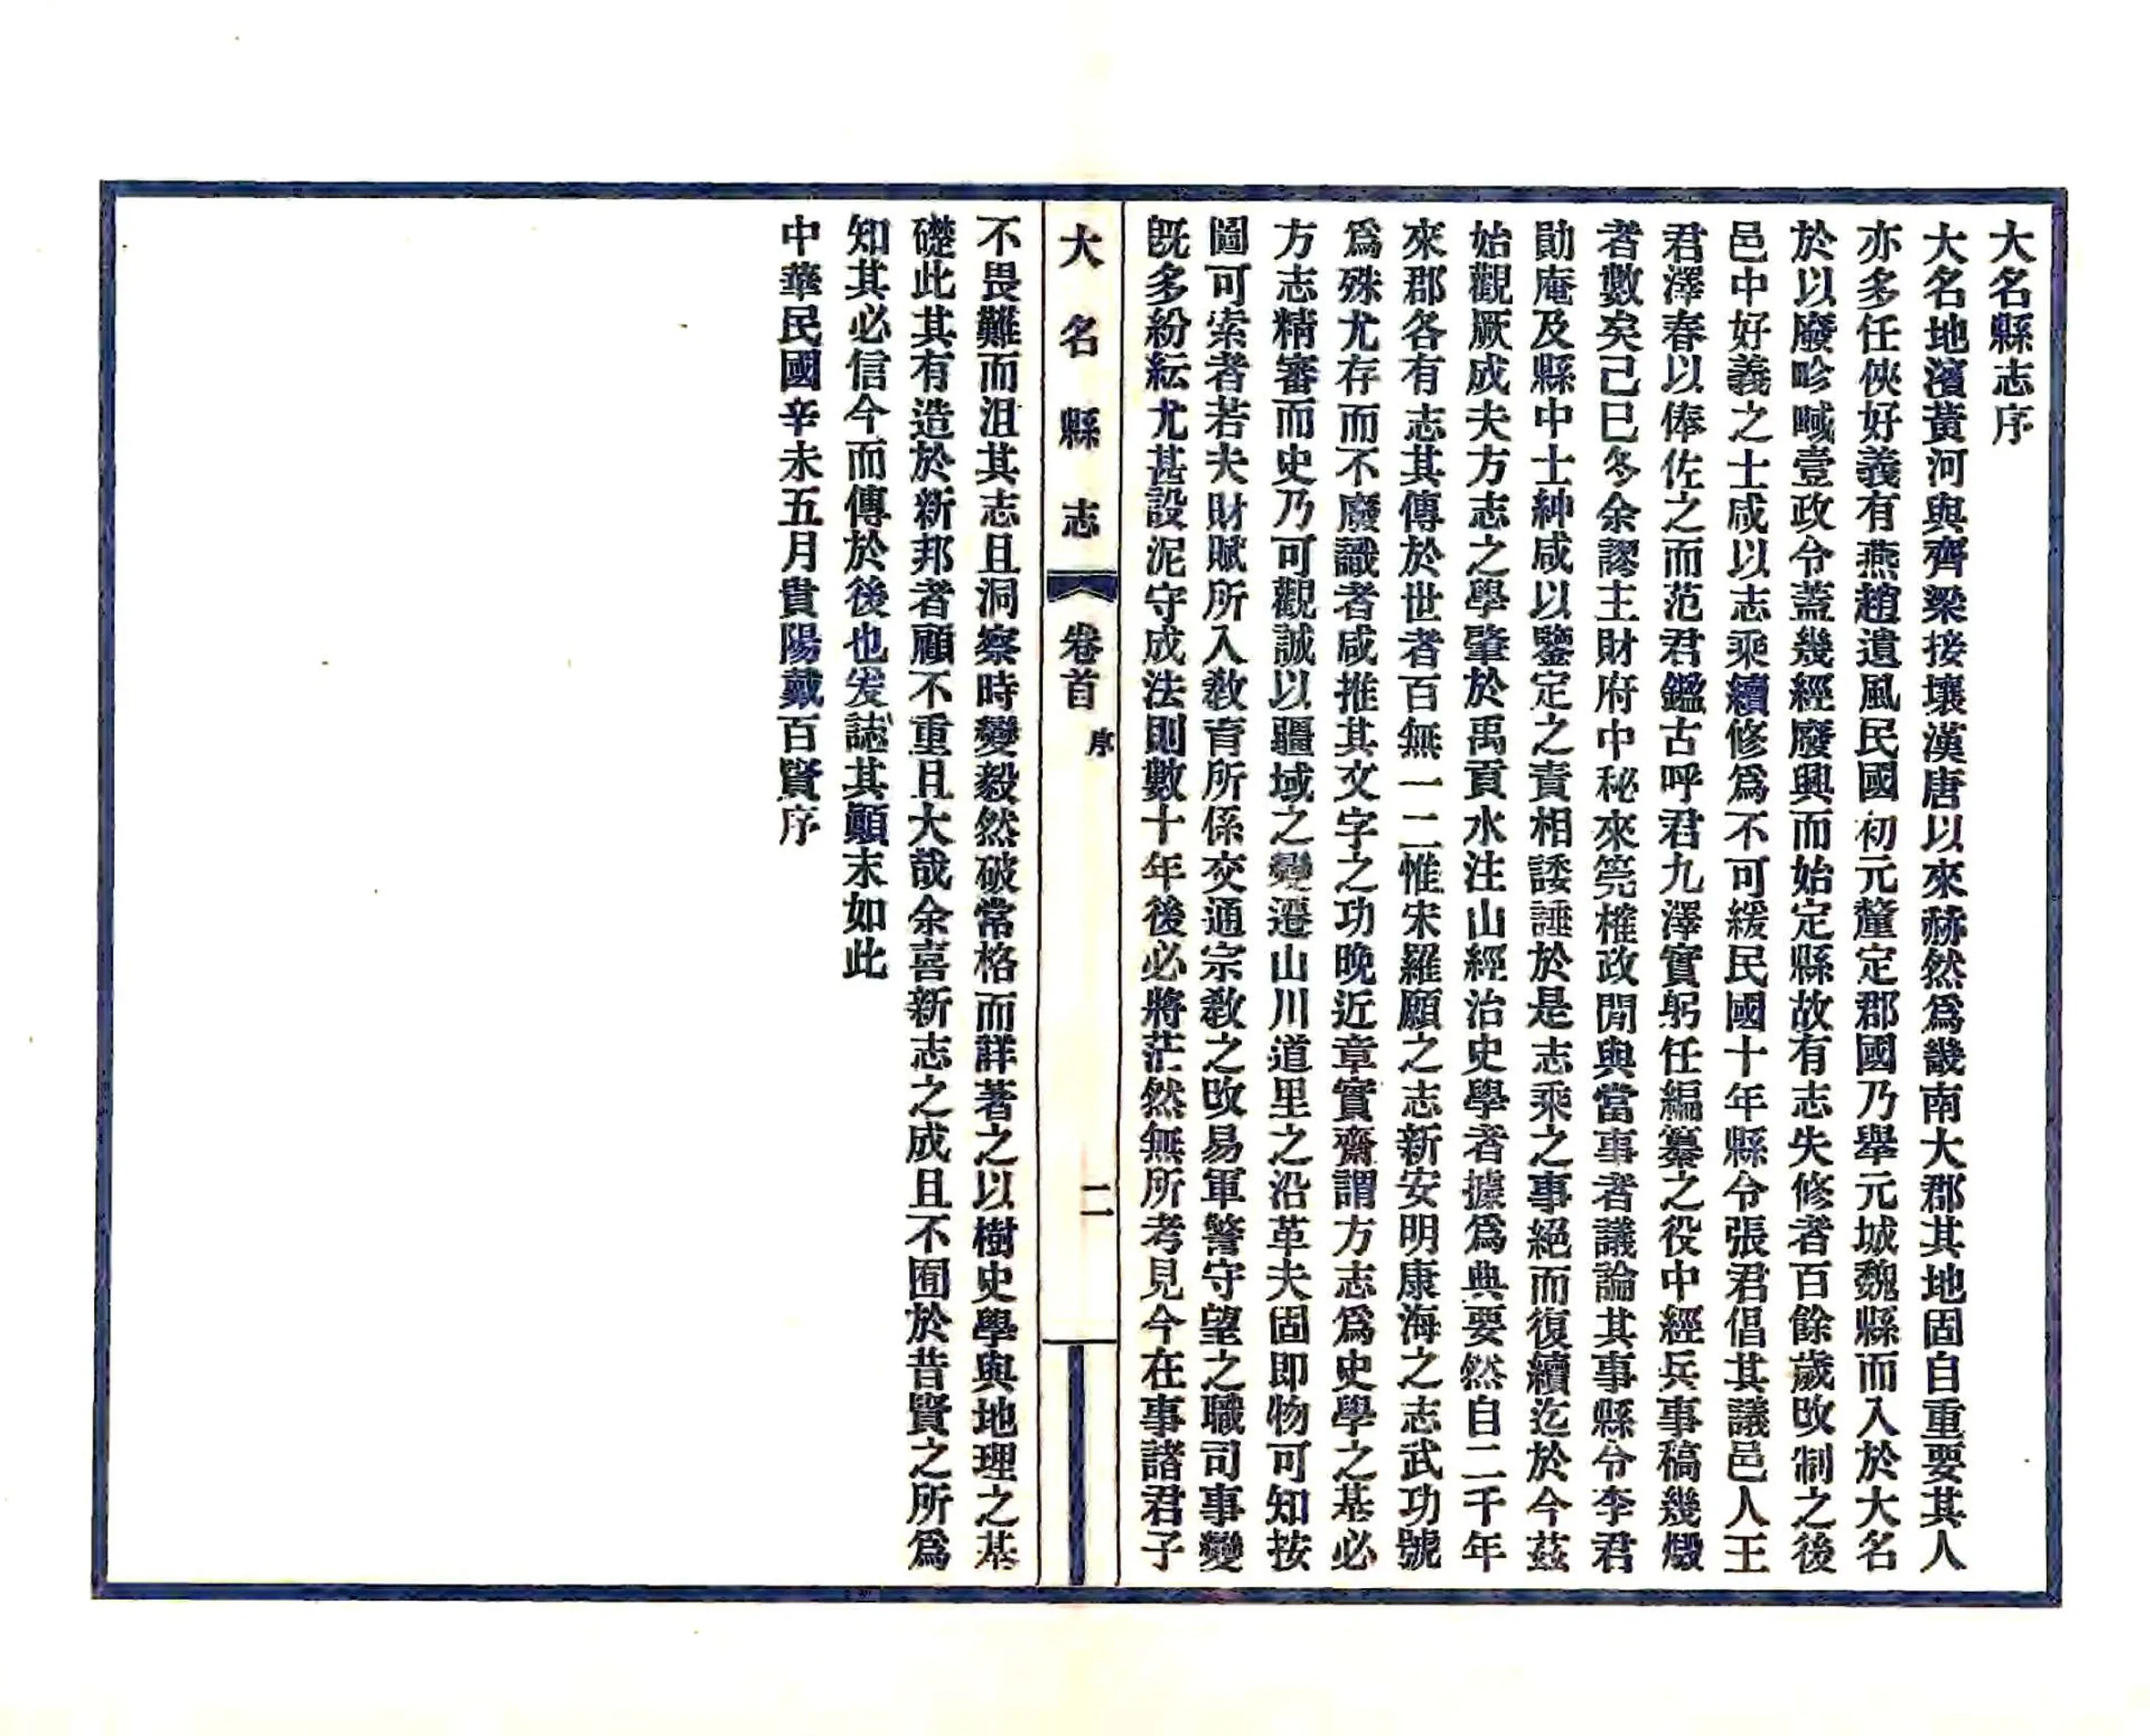 大名縣志序
大名地濱黃河與齊梁接壤漢唐以來赫然爲畿南大郡其地固自重要其人
亦多任俠好義有燕趙遺風民國初元釐定郡國乃舉元城魏縣而入於大名
於以廢畛域壹政令蓋幾經廢興而始定縣故有志失修者百餘歲攺制之後
邑中好義之士咸以志乘續修爲不可緩民國十年縣令張君倡其議邑人王
君澤春以俸佐之而范君鑑古呼君九澤實躬任編纂之役中經兵事稿幾燬
者數矣己巳冬余謬主財府中秘來筦榷政閒與當事者議論其事縣令李君
勛庵及縣中士紳咸以鑒定之責相諉諈於是志乘之事絕而復續迄於今茲
始觀厥成夫方志之學肇於禹貢水注山經治史學者據爲典要然自二千年
來郡各有志其傳於世者百無一二惟宋羅願之志新安明康海之志武功號
爲殊尤存而不廢識者咸推其文字之功晚近章實齋謂方志爲史學之基必
方志精審而史乃可觀誠以疆域之變遷山川道里之沿革夫固即物可知按
圖可索者若夫財賦所入敎育所係交通宗敎之攺易軍警守望之職司事變
旣多紛紜尤甚設泥守成法則數十年後必將茫然無所考見今在事諸君子
大名縣志
卷首
序
二
不畏難而沮其志且洞察時變毅然破常格而詳著之以樹史學與地理之基
礎此其有造於新邦者顧不重且大哉余喜新志之成且不囿於昔賢之所爲
知其必信今而傳於後也爰誌其顚末如此
中華民國辛未五月貴陽戴百賢序